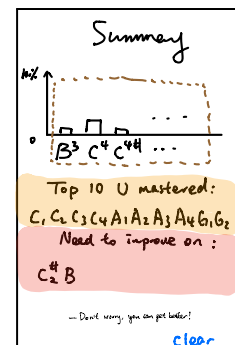 Summary
0
B³ C⁴ C⁴# ...
Top 10 U mastered:
C₁ C₂ C₃ C₄ A₁ A₂ A₃ A₄ G₁ G₂
Need to improve on :
C₂# B
— Don't worry, you can get better!
clear